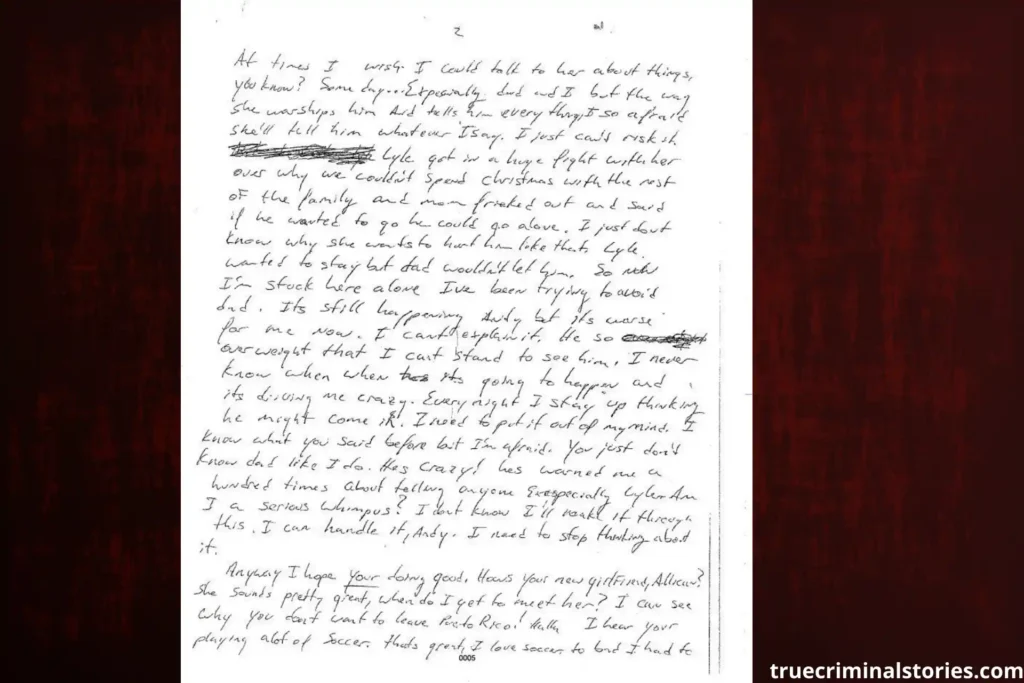 2
At times I wish I could talk to her about things,
you know? Some day... Expecially dad and I but the way
she warships him and tells him everything I so afraid
she'll tell him whatever I say. I just can't risk it.
Lyle got in a huge fight with her
over why we couldn't spend christmas with the rest
of the family and mom frieked out and said
if he wanted to go he could go alone. I just dont
know why she wants to hurt him like that. Lyle
wanted to stay but dad wouldn't let him. So now
I'm stuck here alone I've been trying to avoid
dad. Its still happening Andy but its worse
for me now. I can't explain it. He so
overweight that I can't stand to see him. I never
know when when its going to happen and
its driving me crazy. Every night I stay up thinking
he might come in. I need to put it out of my mind. I
know what you said before but I'm afraid. You just don't
know dad like I do. Hes crazy! hes warned me a
hundred times about telling anyone Exespecially Lyle. Am
I a serious whimpus? I don't know I'll make it through
this. I can handle it, Andy. I need to stop thinking about
it.
Anyway I hope your doing good. Hows your new girlfriend,
She sounds pretty great, when do I get to meet her? I can see
why you don't want to leave Puerto Rico! HaHa I hear your
playing alot of Soccer. thats great, I love soccer. to bad I had to
0005
truecriminalstories.com